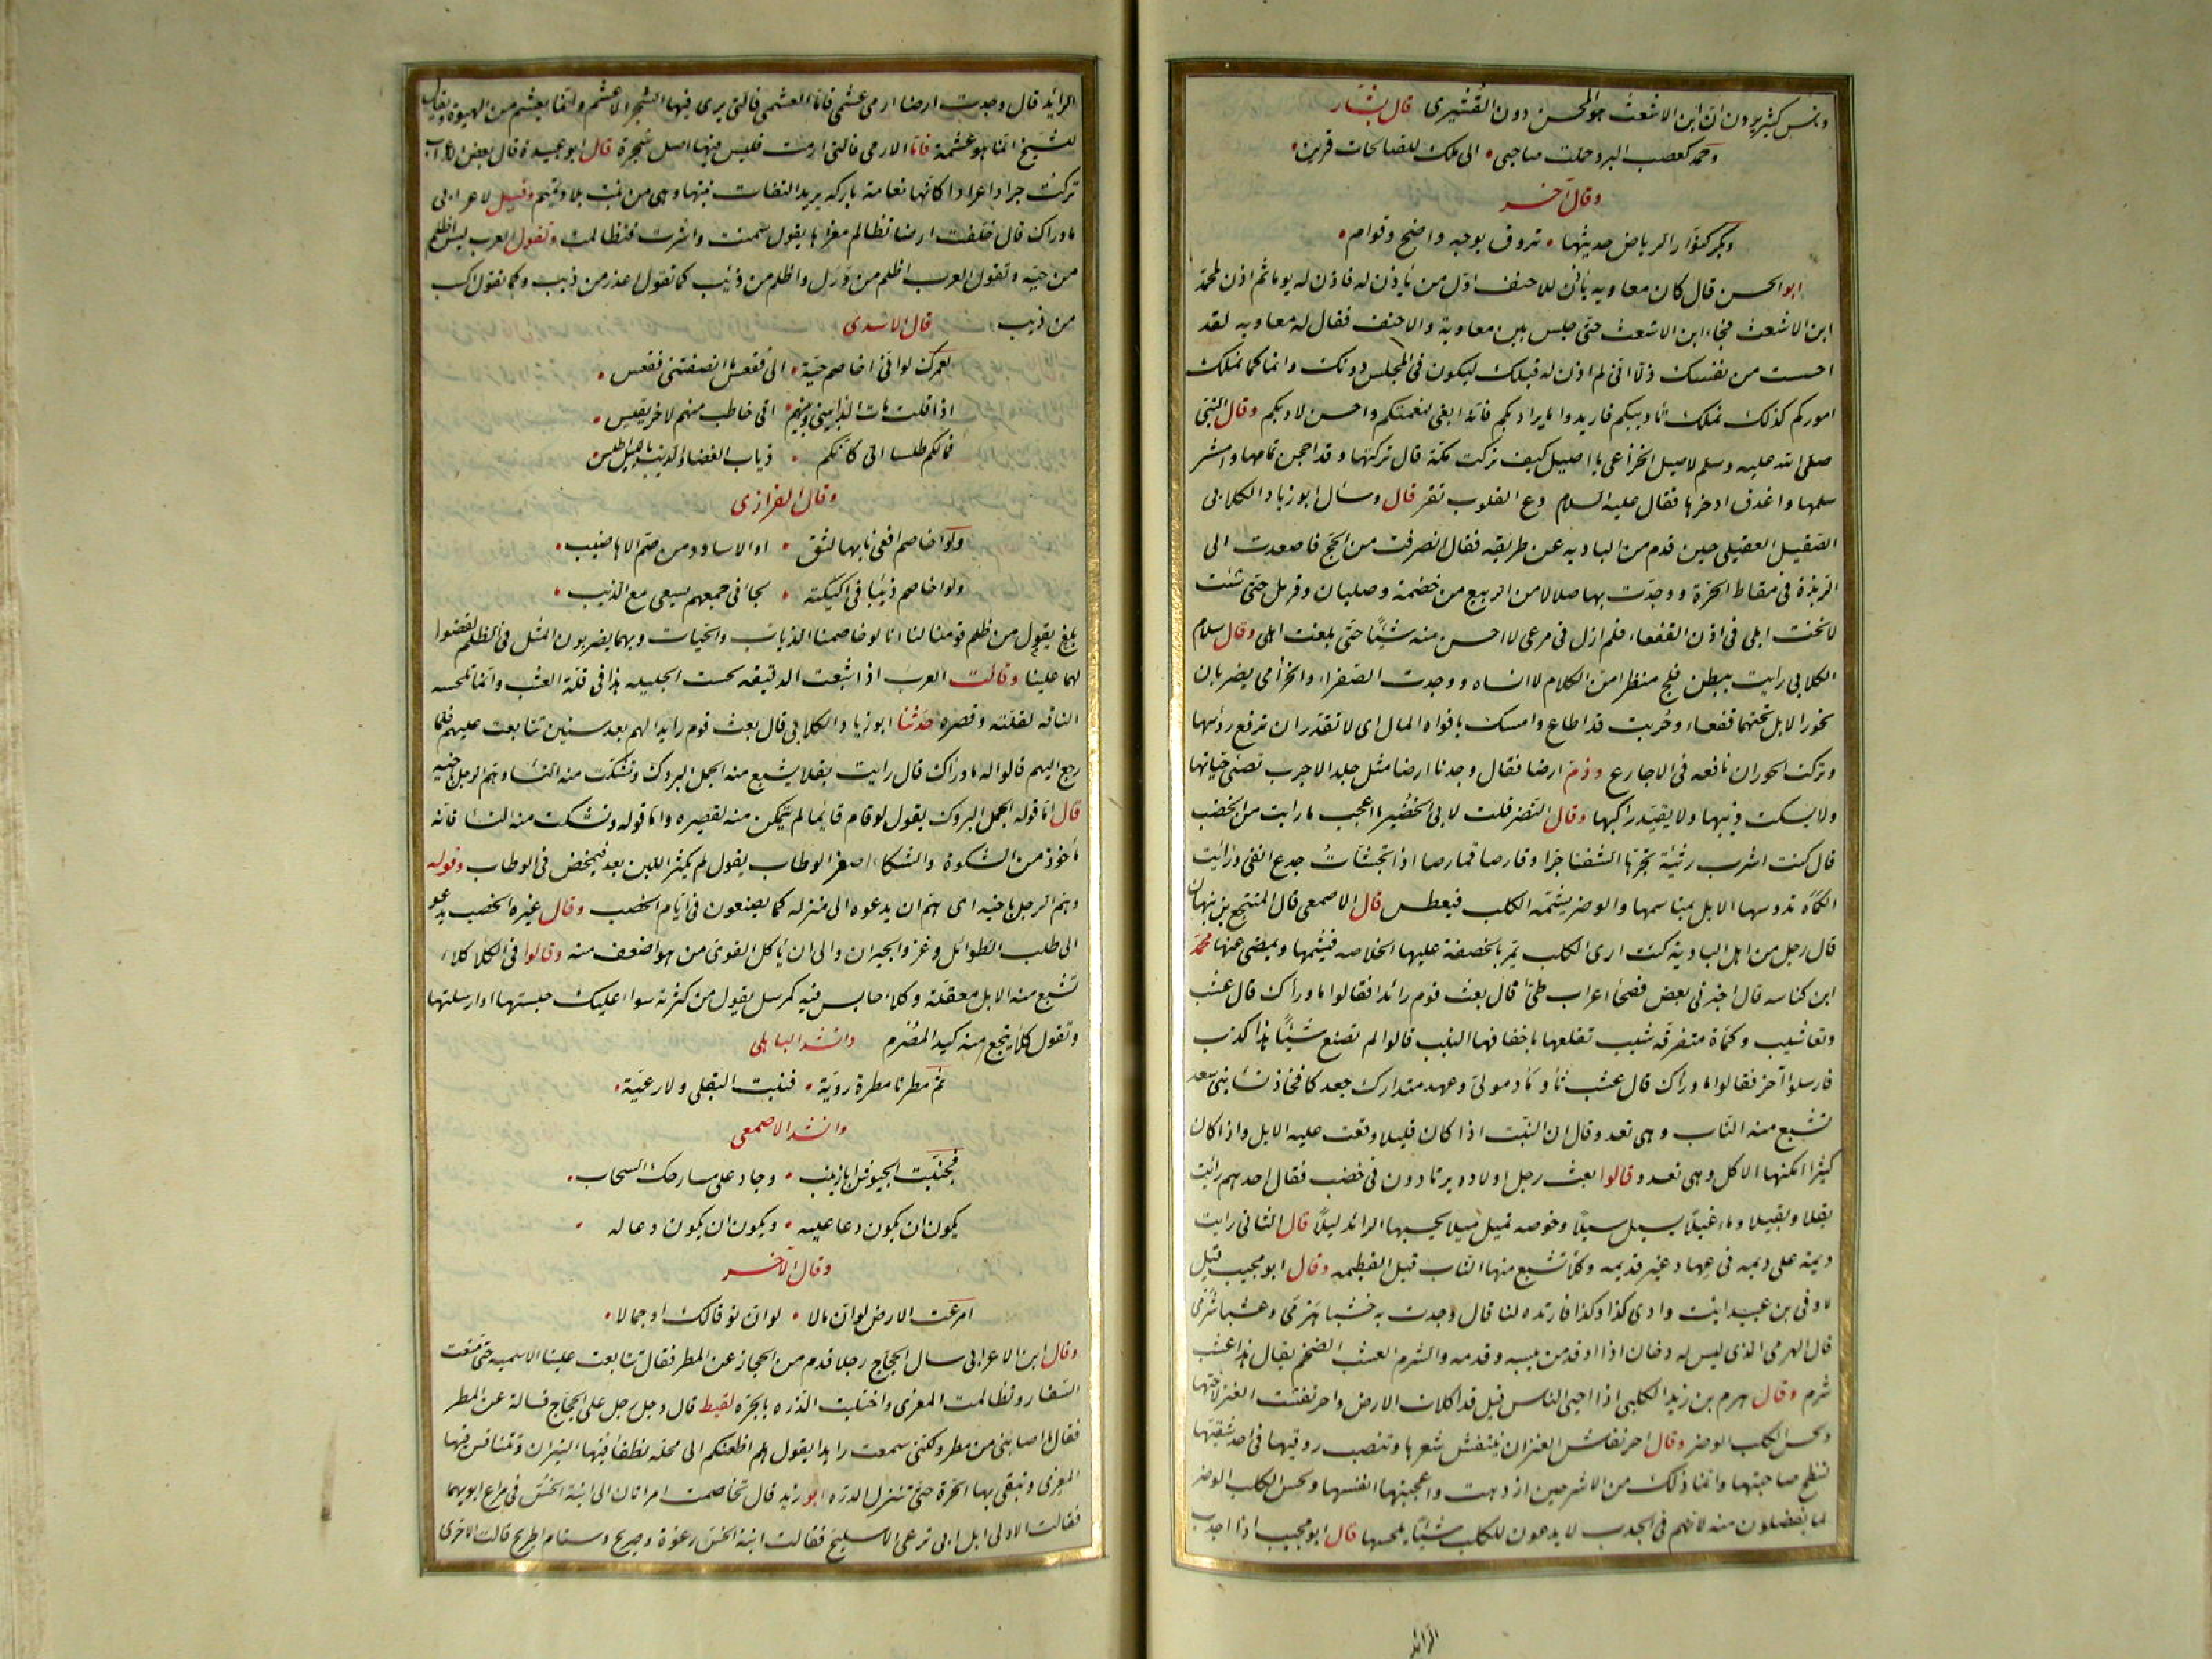 وناس كثير يردون ان ابن الاشعث هو المحسن دون القشيرى قال بشار
وحمد كعصب البرد حملت صاحبى • الى ملك للصالحات قرين •
وقال آخر
وبكر كنوار الرياض حديثها • تروق بوجه واضح وقوام •
ابو الحسن قال كان معاويه يأذن للاحنف اول من يأذن له فاذن له يوما ثم اذن لمحمد
ابن الاشعث فجاء ابن الاشعث حتى جلس بين معاوية والاحنف فقال له معاويه لقد
احسست من نفسك ذلا انى لم اذن له قبلك ليكون فى المجلس دونك وانا كما نملك
اموركم كذلك نملك تأديبكم فاريدوا ما يراد بكم فانه ابقى لنعمتكم واحسن لادبكم وقال النبى
صلى الله عليه وسلم لاصيل الخزاعى يا اصيل كيف تركت مكة قال تركتها وقد احجن ثمامها وامشر
سلمها واغدق اذخرها فقال عليه السلام دع القلوب تقر قال وسأل ابو زياد الكلابى
الصقيل العقيلى حين قدم من الباديه عن طريقه فقال انصرفت من الحج فاصعدت الى
الربذة فى مقاط الحرة ووجدت بها صلالا من الربيع من خضمة وصليان وقرمل حتى شئت
لانخت ابلى فى اذن القفعاء فلم ازل فى مرعى لا احسن منه شيئا حتى بلغت اهلى وقال سلام
الكلابى رايت ببطن فلج منظرا من الكلام لا انساه ووجدت الصفراء والخزامى يضربان
نحور الابل تحتهما قفعاء وحربث قد اطاع وامسك بافواه المال اى لا تقدر ان ترفع رؤسها
وتركت الحوران ناقعه فى الاجارع وذم ارضا فقال وجدنا ارضا مثل جلد الاجرب تصئى حياتها
ولا يسكت ذيبها ولا يقيد راكبها وقال النضر قلت لابى الخضير ما اعجب ما رايت من الخصب
قال كنت اشرب رثيئة تجرها الشفتان جرا وقارصا قمارصا اذا تجشأت جدع انفى ورأيت
الكمأه تدوسها الابل بمناسمها والوضر يشتمه الكلب فيعطس قال الاصمعى قال المنتجع بن نبهان
قال رجل من اهل البادية كنت ارى الكلب يمر بالخصفة عليها الخلاصه فيشمها ويمضى عنها محمد
ابن كناسه قال اخبرنى بعض فصحاء اعراب طئ قال بعث قوم رائدا فقالوا ما وراك قال عشب
وتعاشيب وكمأة متفرقه شيب تقلعها باخفافها النيب قالوا لم تصنع شيئا هذا كذب
فارسلوا آخر فقالوا ما وراك قال عشب ثأد مأد مولى وعهد متدارك جعد كافخاذ نساء بنى سعد
تشبع منه الناب وهى تعد وقال ان النبت اذا كان قليلا وقعت عليه الابل واذا كان
كثيرا امكنها الاكل وهى تعد وقالوا بعث رجل اولاده يرتادون فى خصب فقال احدهم رأيت
بقلا وبقيلا وماء غيلا يسيل سيلا وخوصه تميل ميلا يحسبها الرائد ليلا قال الثانى رايت
ديمة على ديمه فى عهاد غير قديمه وكلأ تشبع منها الناب قبل الفطيمه وقال ابو مجيب قيل
لاوفى بن عبيد ايت وادى كذا وكذا فارتده لنا قال وجدت به خشبا هرمى وعشبا شرمى
قال الهرمى الذى ليس له دخان اذا اوقد من يبسه وقدمه والشرم العشب الضخم يقال هذا عشب
شرم وقال هرم بن زيد الكلبى اذا احيى الناس قيل قد اكلات الارض واحرنفشت العنز لاختها
ولحس الكلب الوضر وقال احرنفاش العنز ان ينتفش شعرها وتنصب روقيها فى احد شقيها
لتنطح صاحبتها وانما ذلك من الاشر حين ازدهت واعجبتها انفسها ولحس الكلب الوضر
لما يفضلون منه لانهم فى الجدب لا يدعون للكلب شيئا يلحسها قال ابو مجيب اذا اجدب
الرائد
الرائد قال وجدت ارضا ارمى عشمى فاما العشمى فالتى يرى فيها الشجر الاعشم وانما يعشم من الهبوة ويقال
للشيخ انما هو عشمة فاما الارمى فالتى ارمت فليس فيها اصل شجرة قال ابو عبيدة قال بعض الاعراب
تركت جرادا عرادا كانها نعامة باركه يريد التفات نبتها وهى من نبت بلاد تميم وقيل لاعرابى
ما وراك قال خلفت ارضا تظالم معزاها يقول سمنت واشرت فتظالمت وتقول العرب ليس اظلم
من حية وتقول العرب اظلم من ورل واظلم من ذيب كما تقول اغدر من ذيب وكما تقول اكسب
من ذيب قال الاسدى
لعمرك لو انى اخاصم حية • الى فقعس ما انصفتنى فقعس •
اذا قلت مات الداء بينى وبينهم • اتى حاطب منهم لاخر يقبس •
فما لكم طلسا الى كانكم • ذياب الغضا والذيب بالليل اطلس •
وقال الفزارى
ولو اخاصم افعى نابها لثق • او الاساود من صم الاهاضيب •
ولو اخاصم ذيبا فى اكيلته • لجاءنى جمعهم يسعى مع الذيب •
بلغ يقول من ظلم قومنا لنا انا لو خاصمنا الذياب والحيات وبهما يضربون المثل فى الظلم لقضوا
لهما علينا وقالت العرب اذا شبعت الدقيقه لحست الجليله هذا فى قلة العشب وانما تلحسه
الناقه لقلته وقصره حدثنا ابو زياد الكلابى قال بعث قوم رايدا لهم بعد سنين تتابعت عليهم فلما
رجع اليهم قالوا له ما وراك قال رايت بقلا يشبع منه الجمل البروك وتشكت منه النساء وهم الرجل باخيه
قال اما قوله الجمل البروك يقول لو قام قايما لم يتمكن منه لقصره واما قوله وتشكت منه النساء فانه
مأخوذ من الشكوة والشكاء اصغر الوطاب يقول لم يكثر اللبن بعد فيمخض فى الوطاب وقوله
وهم الرجل باخيه اى هم ان يدعوه الى منزله كما يصنعون فى ايام الخصب وقال غيره الخصب يدعو
الى طلب الطوائل وغزو الجيران والى ان يأكل القوى من هو اضعف منه وقالوا فى الكلا كلاء
تشبع منه الابل معقلة وكلاء حابس فيه كمرسل يقول من كثرته سواء عليك حبستها او ارسلتها
وتقول كلأ يتجع منه كبد المصرم وانشد الباهلى
ثم مطرنا مطرة روية • فنبت البقلى ولا رعية •
وانشد الاصمعى
فجنبت الجيوش ابا زينب • وجاد على مسارحك السحاب •
يكون ان يكون دعا عليه • ويكون ان يكون دعا له •
وقال الآخر
امرعت الارض لو ان مالا • لو ان نوقا لك او جمالا •
وقال ابن الاعرابى سال الحجاج رجلا قدم من الحجاز عن المطر فقال تتابعت علينا الاسميه حتى منعت
السفار وتظالمت المعزى واختلبت الدرة بالجره لقيط قال دخل رجل على الحجاج فساله عن المطر
فقال ما اصابنى من مطر ولكنى سمعت رايدا يقول هلم اظعنكم الى محلة تطفأ فيها النيران وتتنافس فيها
المعزى وتبقى بها الجرة حتى تنزل الدره ابو زيد قال تخاصمت امرأتان الى ابنة الخس فى مراعى ابويهما
فقالت الاولى ابل ابى ترعى الاسليح فقالت ابنة الخس رغوة وصريح وسنام اطريح قالت الاخرى